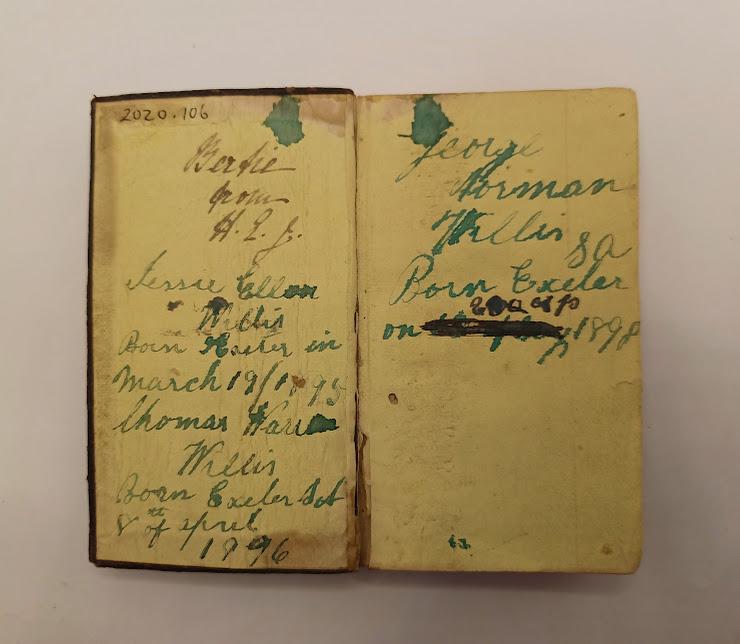 2020.106
Bertie
from
H. E. J.
Jessie Ellen
Willis
Born Exeter in
March 19/1895
Thomas Warren
Willis
Born Exeter Sat
8th of April
1896
George
Norman
Willis
Born Exeter
on 1898